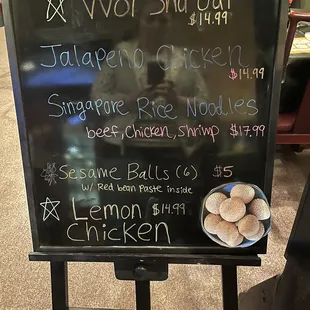 Wor Shu Dui
$14.99
Jalapeno Chicken
$14.99
Singapore Rice Noodles
beef, Chicken, shrimp $17.99
Sesame Balls (6) $5
w/ Red bean Paste inside
Lemon $14.99
Chicken